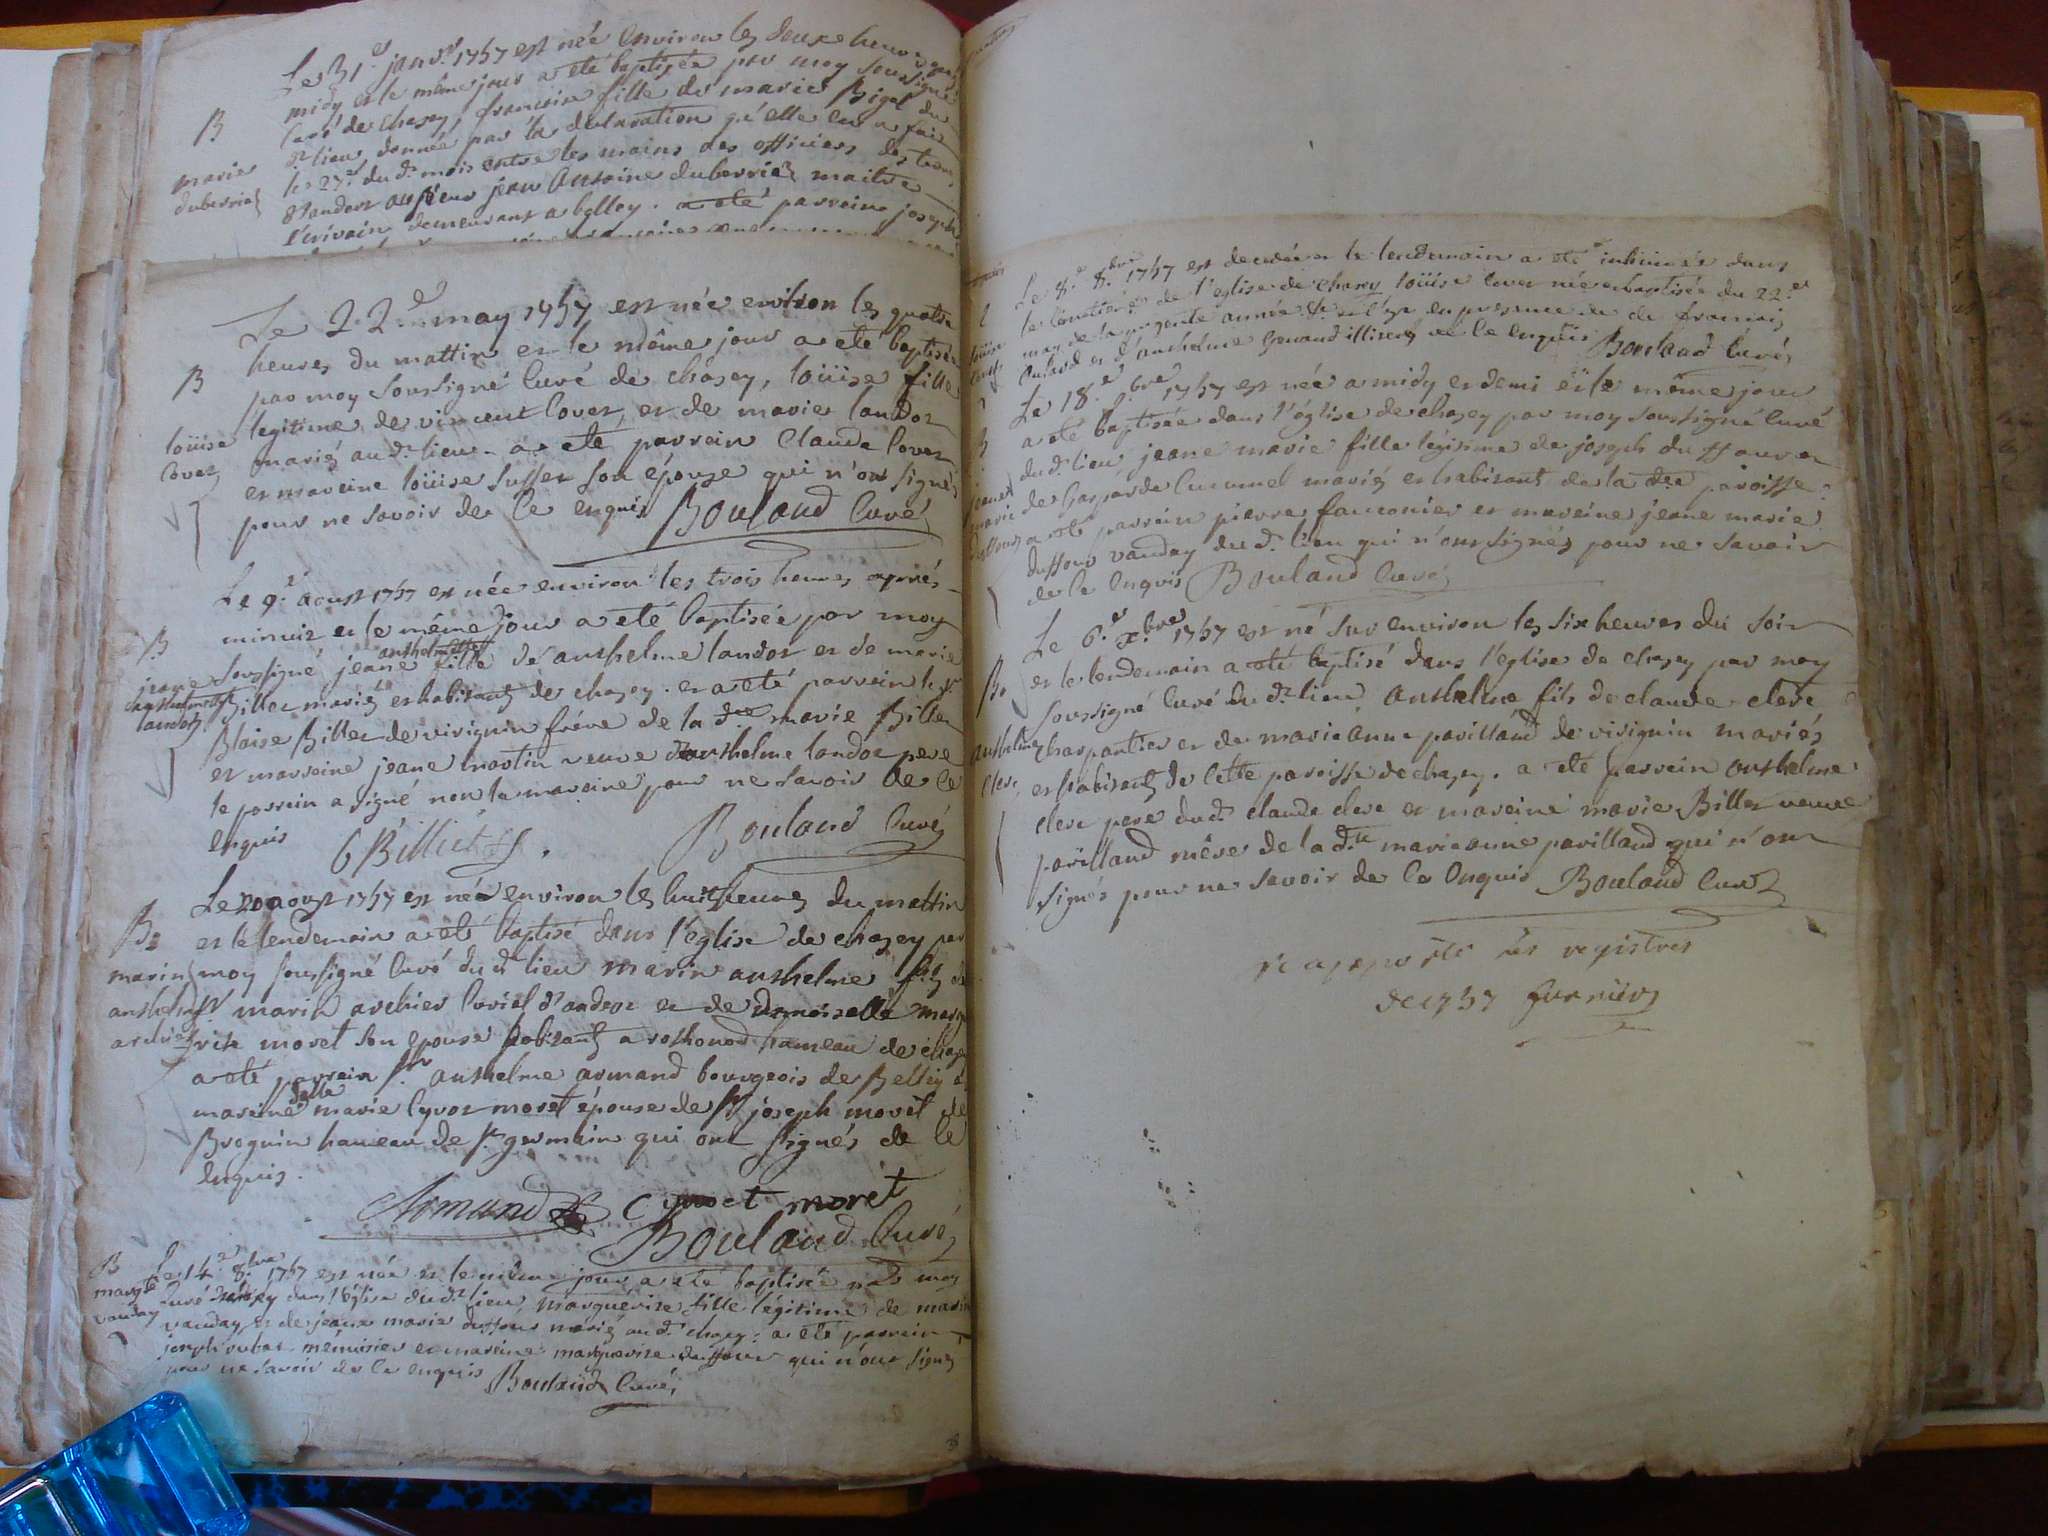 Le 31.e janv.r 1757 est née environ les deux heures apres
midy et le même jour a eté baptisée par moy soussigné
B
Curé de chasey, francoise fille de marie Bigel du
d.t lieu donnée par la declaration qu'elle en a fait
marie
duberriez
les 27.e du d.t mois entre les mains des officiers des terres
d'andort au sieur jean Antoine duberriez maitre
Ecrivain demeurant a belley. a eté parrein joseph
Le 22.e may 1757 est née environ les quatre
heures du mattin et le même jour a eté baptisée
B
par moy soussigné Curé de chasey, loüise fille
loüise
Covez
legitime de vincent Covez, et de marie landoz
mariéz au d.t lieu. a eté parrein Claude Covez
et mareine loüise suffer son épouse qui n'ont signéz
pour ne savoir de ce enquis Bouland Curé
Le 9.e aoust 1757 est née environ les trois heures aprés
minuit et le même jour a eté baptisée par moy
B
soussigné jeane anthelmette fille de anthelme landoz et de marie
jeane
anthelmette
landoz
Billiez mariéz et habitantz de chasey. et a eté parrein le s.r
Blaise Billiez de virignin frére de la d.te marie Billiez
et marreine jeane martin veuve d'anthelme landoz pere
le parrein a signé non la mareine pour ne savoir de ce
enquis
B Billiet
Bouland Curé
Le 20 aoust 1757 est né environ les huit heures du mattin
B
et le lendemain a eté baptisé dans l'église de chasey par
marin
anthelme
archier
moy soussigné Curé du d.t lieu marin anthelme fils de
s.r marin archier Curial d'andoz et de demoiselle margue
rite moret son epouse habitantz a rothonod hameau de chasey
a eté parrein s.r anthelme armand bourgeois de Belley et
mareine d.elle marie Cyvoz moret épouse de s.r joseph moret de
Brognin hameau de s.t germain qui ont signés de ce
enquis.
Armand Cyvoct moret
Bouland Curé
B
marg.te
vauday
Le 14.e 8.bre 1757 est née et le même jour a eté baptisée par moy
Curé de chasey dans l'église du d.t lieu, marguerite fille légitime de marin
vauday et de jeane marie duffour mariéz au d.t chasey. a eté parrein
joseph menuisier et mareine marguerite duffour qui n'ont signéz
pour ne savoir de ce enquis Bouland Curé
Le 8.e 8.bre 1757 est decedée et le lendemain a eté inhumée dans
le Cimetiere de l'église de chasey loüise Covez née et baptisée du 22.e
loüise
Covez
may de la presente année en presence de francois
et d'anthelme illiterés de ce enquis Bouland Curé
Le 18.e 9.bre 1757 est née a midy et demi et le même jour
a eté baptisée dans l'église de chasey par moy soussigné Curé
B
jeane
marie
duffour
du d.t lieu, jeane marie fille légitime de joseph duffour et
de Gasparde Curumel mariéz et habitantz de la d.te paroisse.
a eté parrein pierre fauconier et mareine jeane marie
duffour vauday du d.t lieu qui n'ont signés pour ne savoir
de ce enquis Bouland Curé
Le 6.e x.bre 1757 est né sur environ les six heures du soir
et le lendemain a eté baptisé dans l'eglise de chasey par moy
B
soussigné Curé du d.t lieu Anthelme fils de claude clerc
anthelme
clerc
charpantier et de marieanne pavilland de virignin mariés
et habitantz de Cette paroisse de chasey. a eté parrein anthelme
clerc pere du d.t claude clerc et mareine marie Billiez veuve
pavilland mére de la d.te marieanne pavilland qui n'ont
signés pour ne savoir de ce enquis Bouland Curé
les registres
de 1757